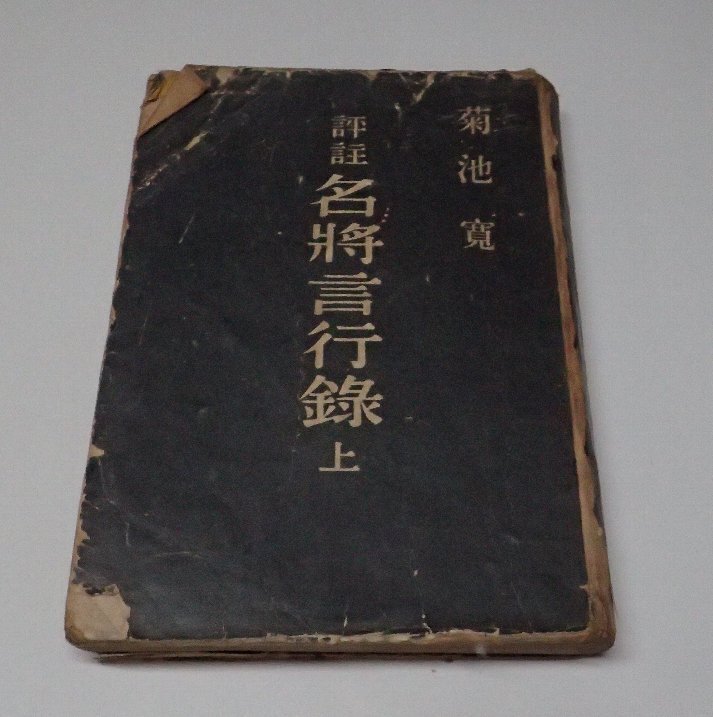 菊池寬
評註
名將言行錄
上